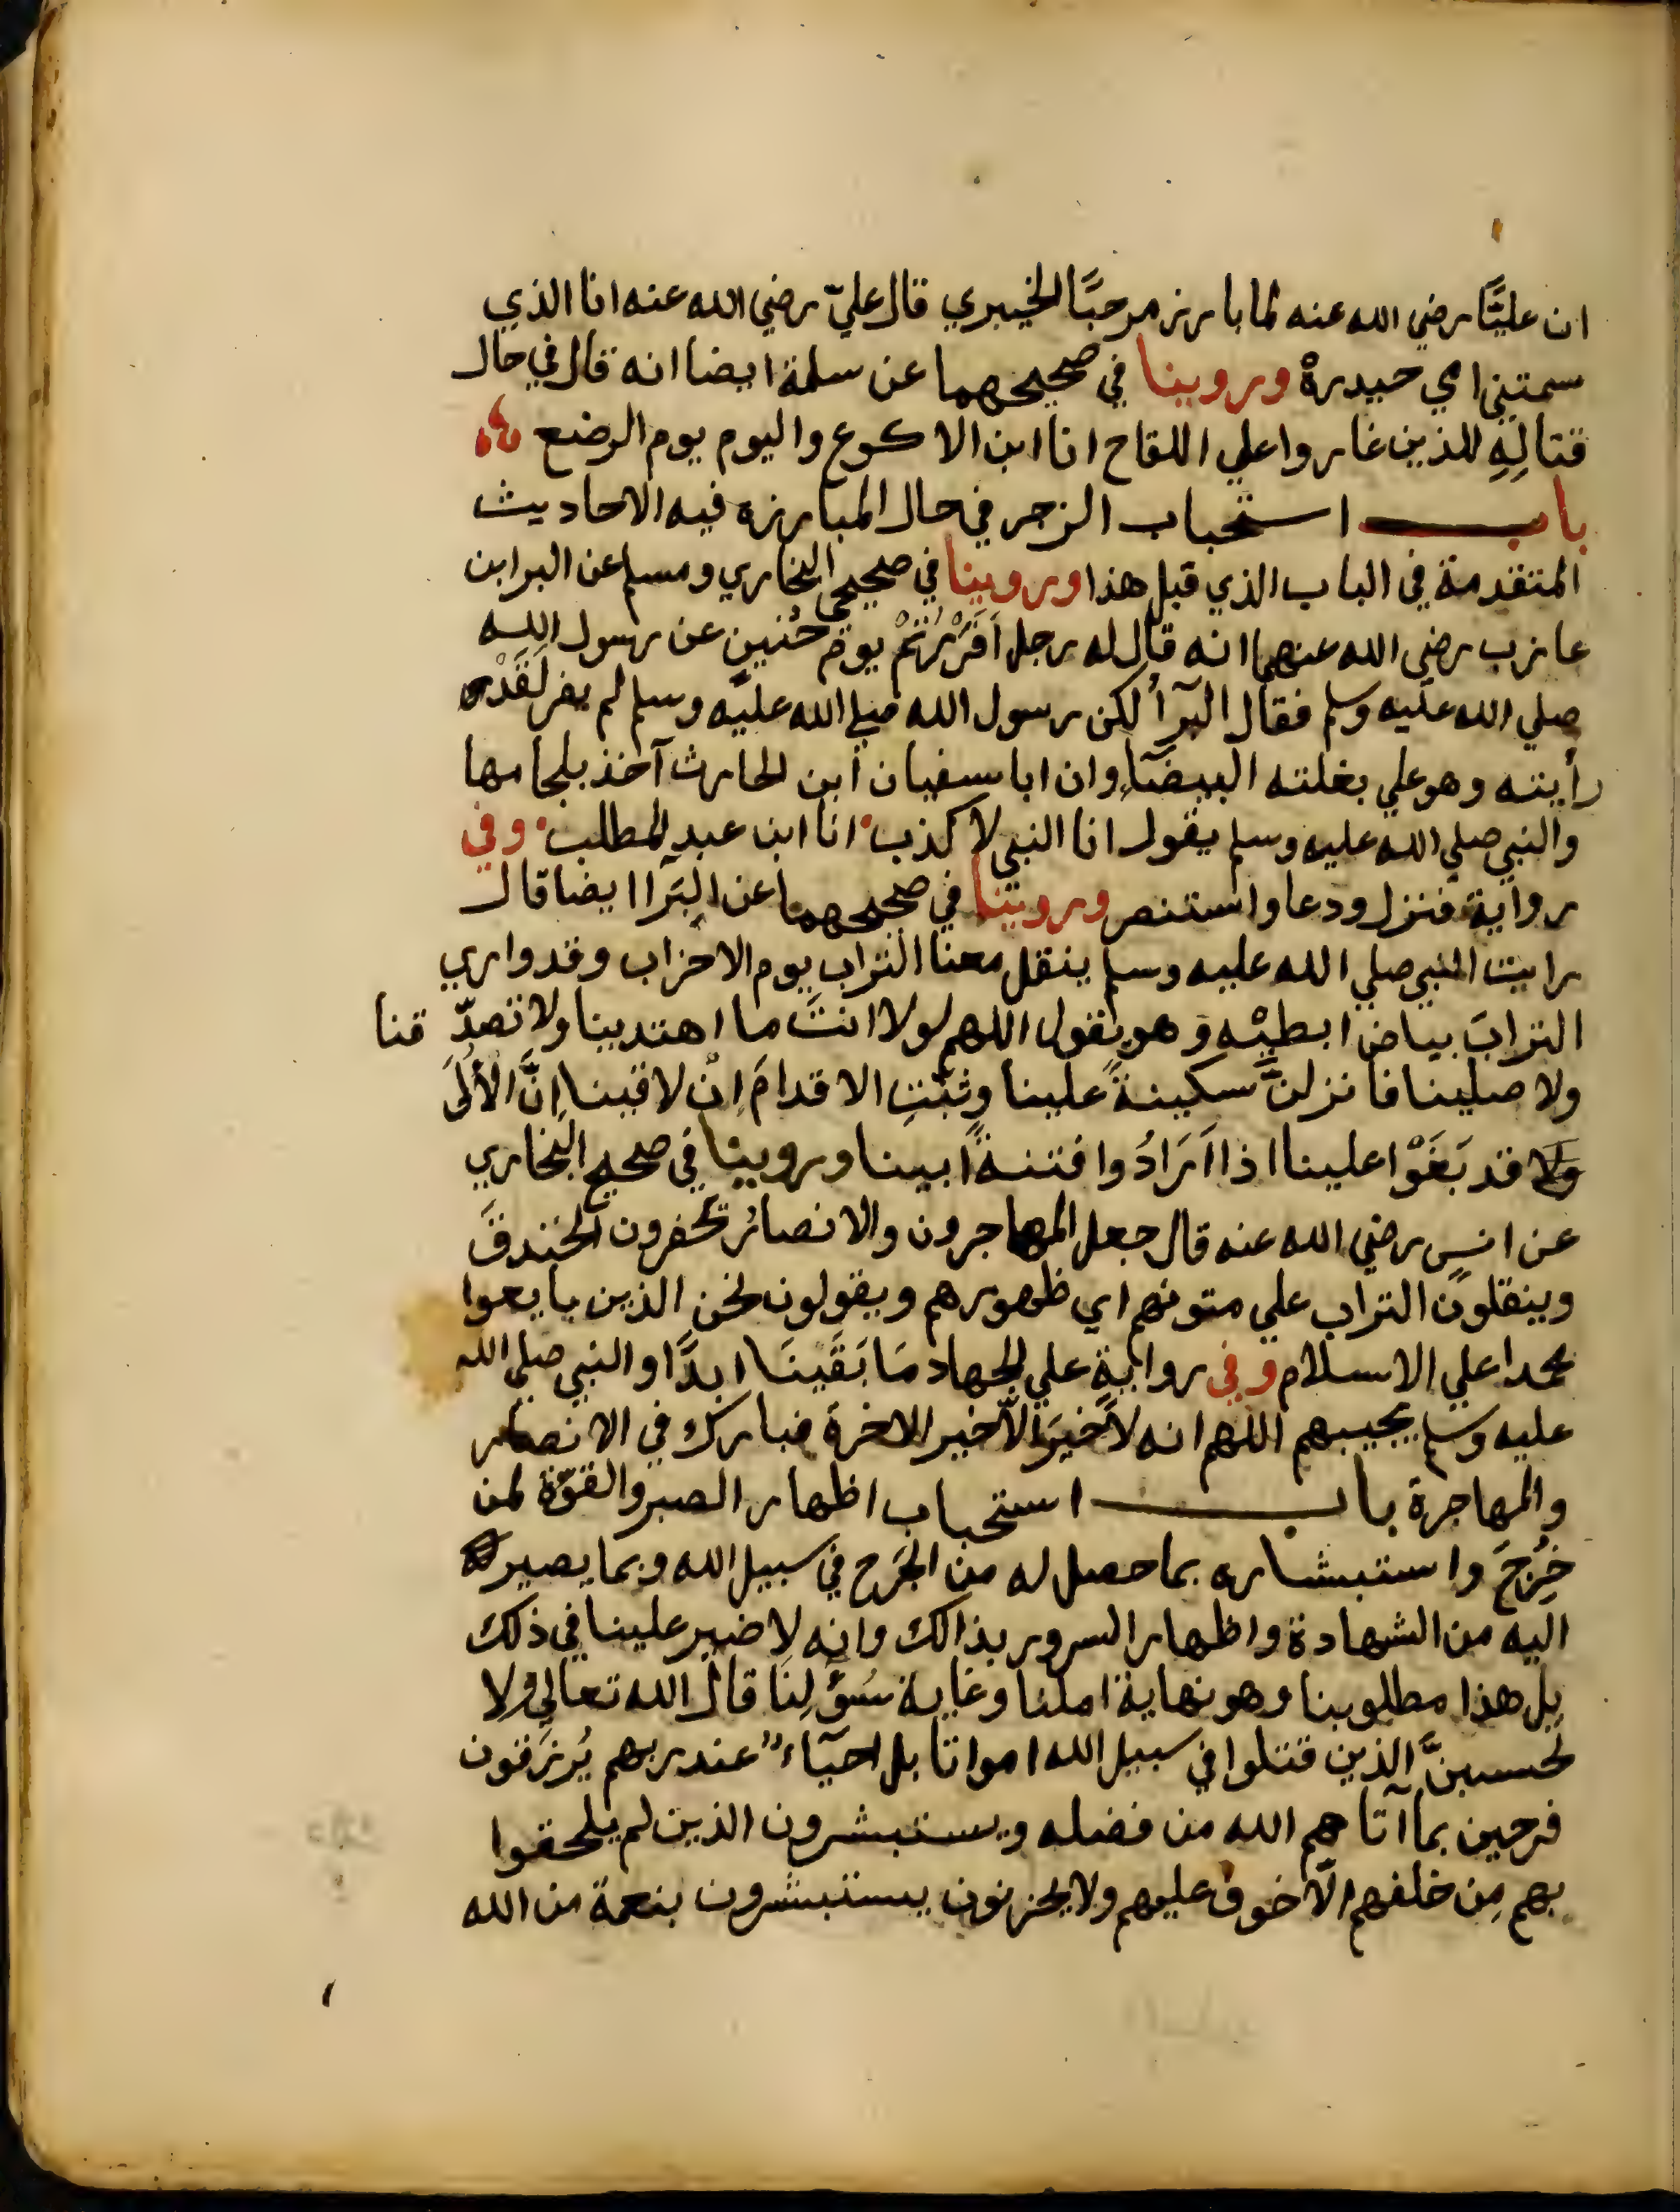 ان عليًّا رضي الله عنه لما بارز مرحبًا الخيبري قال عليّ رضي الله عنه انا الذي
سمتني امي حيدرة وروينا في صحيحهما عن سلمة ايضا انه قال في حال
قتالِهِ للذين غاروا علي اللقاح انا ابن الاكوع واليوم يوم الرضع
باب استحباب الزجر في حال المبارزة فيه الاحاديث
المتقدمة في الباب الذي قبل هذا وروينا في صحيحي البخاري ومسلم عن البرا بن
عازب رضي الله عنهما انه قال له رجل اَفَرَرْتُمْ يومَ حُنينٍ عن رسول الله
صلي الله عليه وسلم فقال البرآُ لكن رسول الله صلي الله عليه وسلم لم يفر لَقَدْ
رأيته وهو علي بغلته البيضآءِ وان ابا سفيان أبن الحارث آخذ بلجامها
والنبي صلي الله عليه وسلم يقول انا النبي لا كذب انا ابن عبد المطلب وفي
رواية فنزل ودعا واستنصر وروينا في صحيحهما عن البَرآا ايضا قال
رايت النبي صلي الله عليه وسلم ينقل معنا التراب يوم الاحزاب وقد واري
الترابَ بياض ابطيْه وهو يقول اللهم لولا انتَ ما اهتدينا ولا تصدّقنا
ولا صلينا فانزلنَّ سكينةً علينا وثبّتِ الاقدامَ اِنْ لاقينا اِنَّ الأُلَى
قد بَغَوْا علينا اذا اَرَادُوا فتنةً ابينا وروينا في صحيح البخاري
عن انسٍ رضي الله عنه قال جعل المهاجرون والانصارُ يحفرون الخندقَ
وينقلون التراب علي متونهم اي ظهورهم ويقولون نحن الذين بايعوا
محمدا علي الاسلام وفي روايةٍ علي الجهاد مَا بَقَينَا ابدًا والنبي صلي الله
عليه وسلم يجيبهم اللهم انه لاَ خيرَ اِلاّ خير الاخرة فبارك في الانصار
والمهاجرة باب استحباب اظهار الصبر والقوّة لمن
جُرِحَ واستبشاره بما حصل له من الجَرح في سبيل الله وبما يصير
اليه من الشهادة واظهار السرور بذالك وانه لا ضير علينا في ذلك
بل هذا مطلوبنا وهو نهاية املنا وغاية سُؤْلِنَا قال الله تعالي ولا
تحسبنَّ الذين قتلوا في سبيل الله امواتا بل احيآء عند ربهم يُرْزَقون
فرحين بما آتاهم الله من فضله ويستبشرون الذين لم يلحقوا
بهم مِن خلفهم الاّ خوف عليهم ولا يحزنون يستبشرون بنعمة من الله